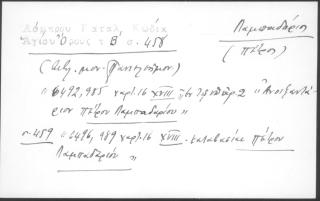 Λάμπρου Καταλ. Κώδικ
Ἁγίου Ὄρους τ. Β' σ. 458
Λαμπαδάριος
(Πέτρος)
(Βιβλ. μον. Παντελεήμονος)
"6492,985 χαρτ. 16 XVIII "Ἀνοιξαντά-
ριον Πέτρου Λαμπαδαρίου"
σ. 459 "6496,989 χαρτ. 16 XVIII. καταβασίαι Πέτρου
Λαμπαδαρίου"